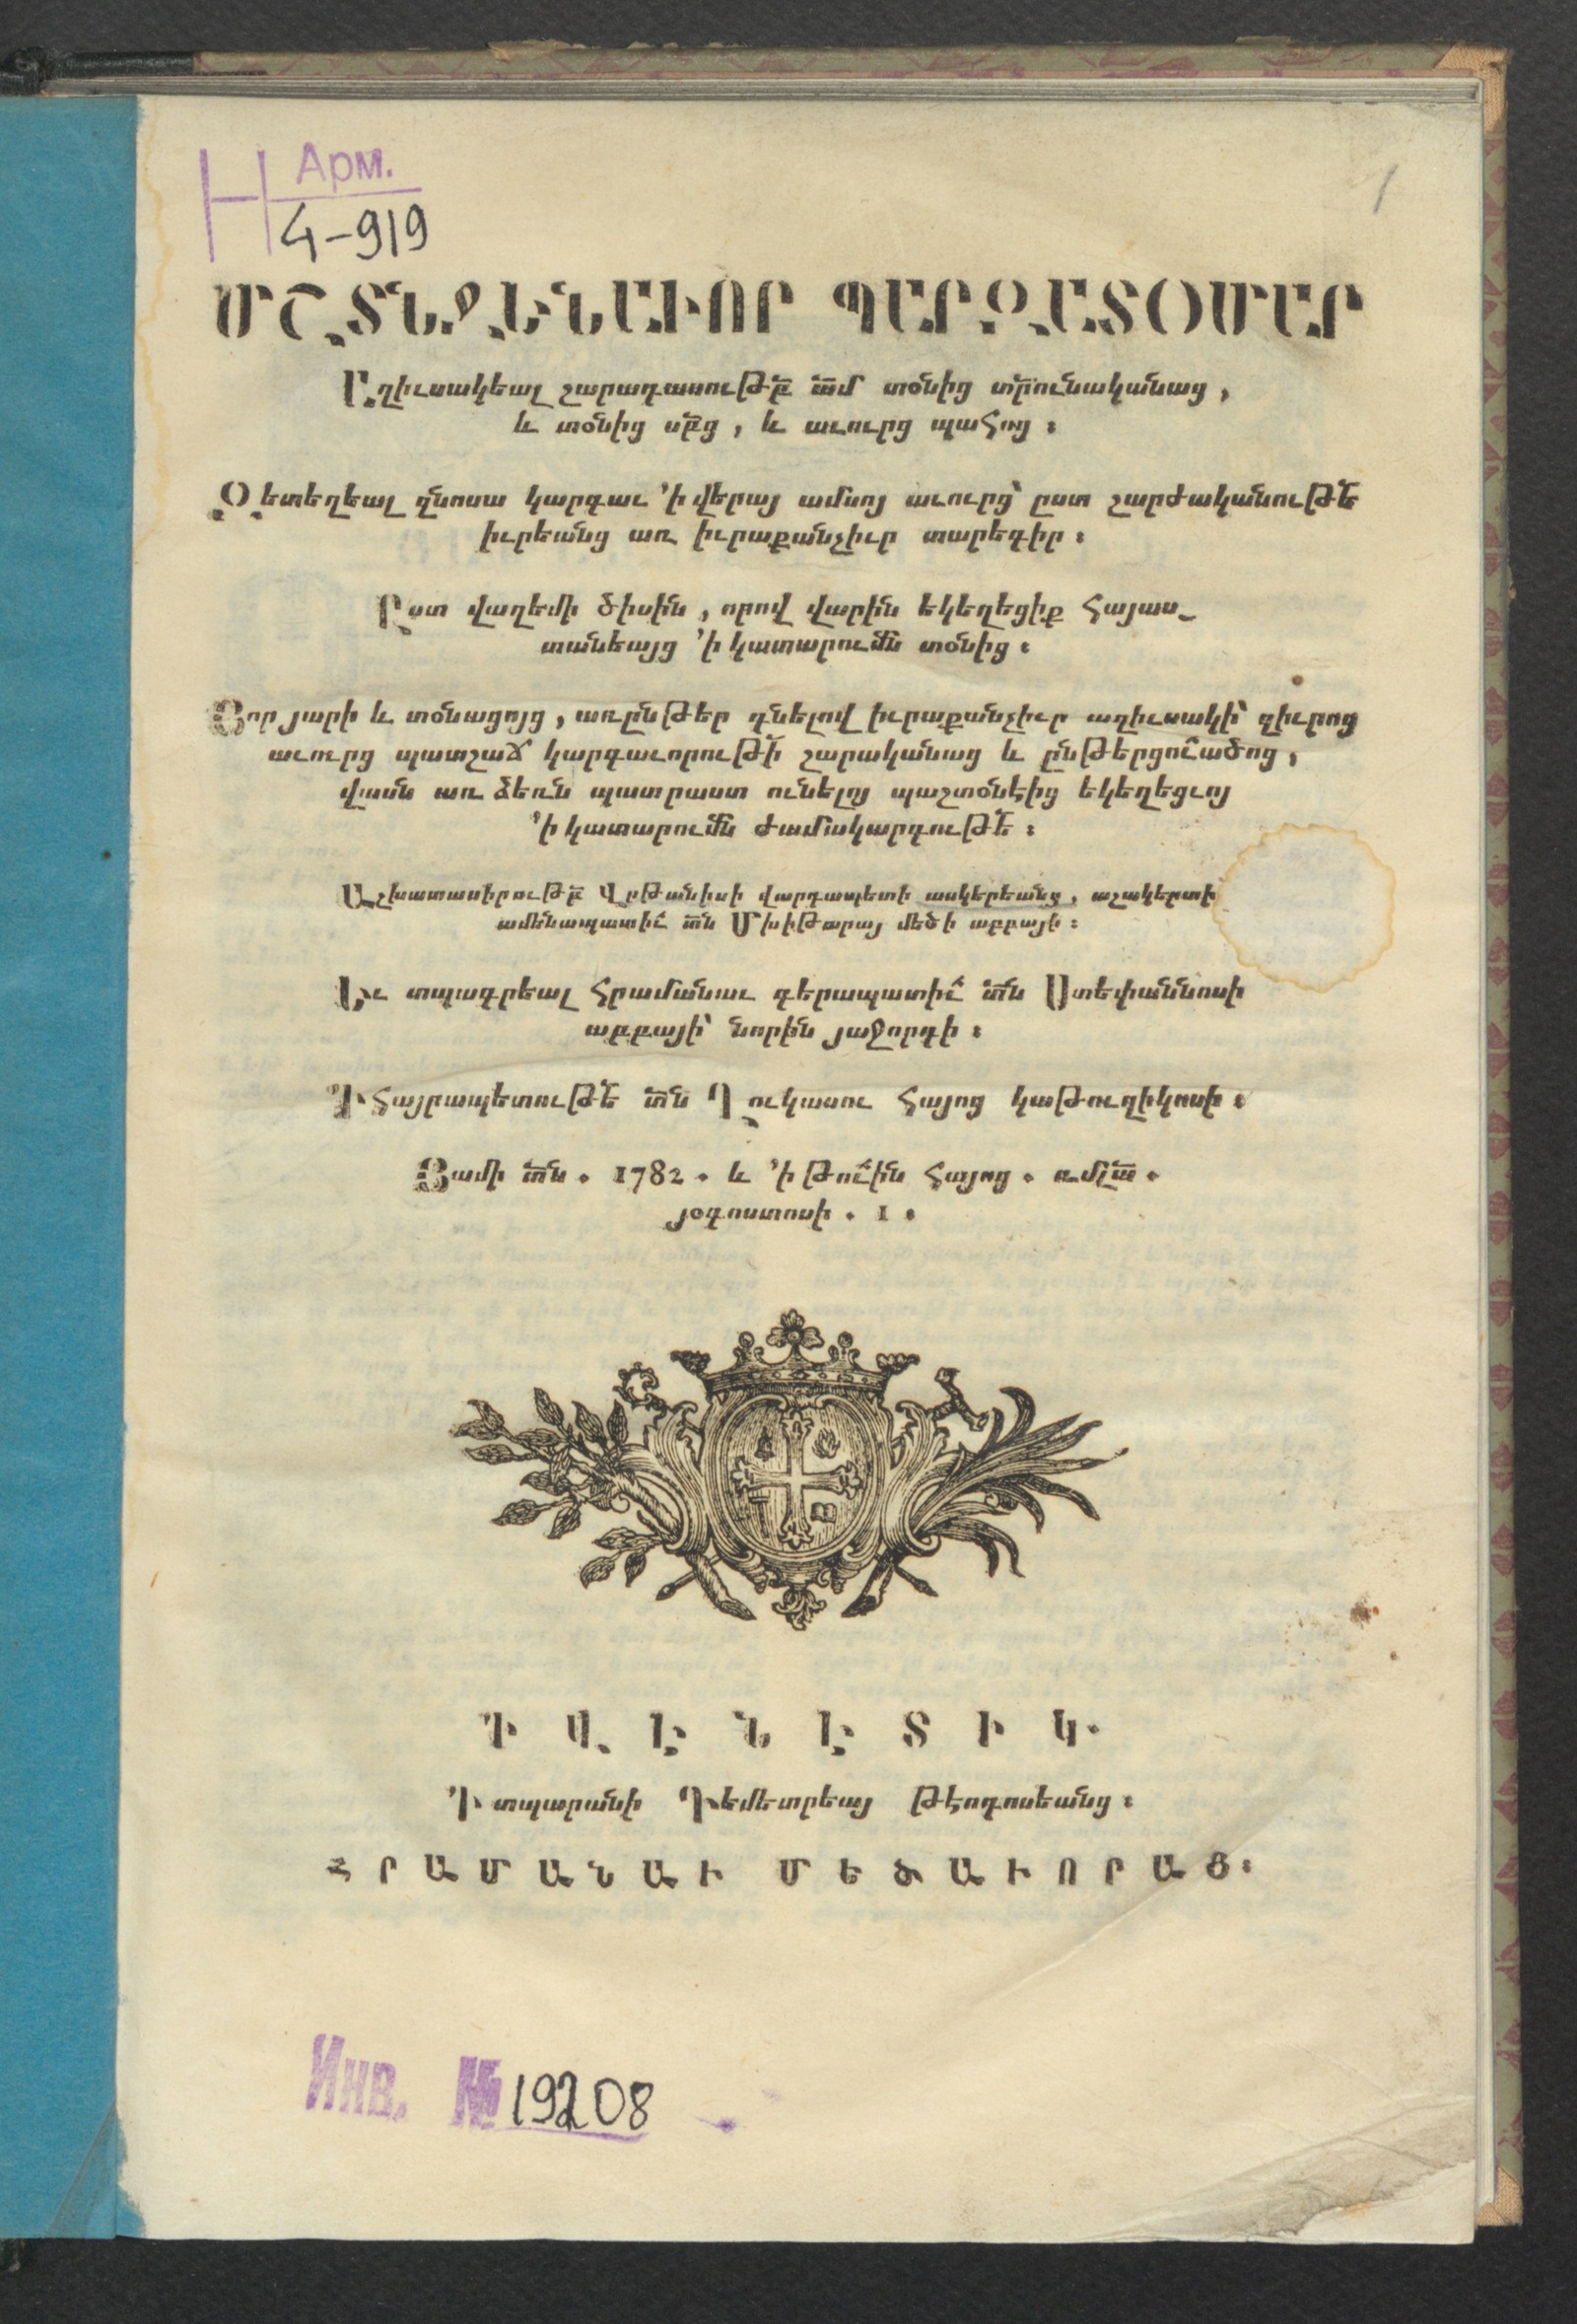 Арм.
1
Н 4-919
ՄՇՏՆՋԵՆԱՒՈՐ ՊԱՐԶԱՏՕՄԱՐ
Աղիւսակեալ շարադասութբ ամ տօնից տրունականաց,
և տօնից սբց, և աւուրց պահոց։
Զետեղեալ զնոսա կարգաւ ՚ի վերայ ամսոյ աւուրց՝ ըստ շարժականութե
իւրեանց առ իւրաքանչիւր տարեգիր։
Ըստ վաղեմի ծիսին, որով վարին եկեղեցիք Հայաս-
տանեայց ՚ի կատարումն տօնից։
Յորյարի և տօնացոյց, առընթեր դնելով իւրաքանչիւր աղիւսակի՝ զիւրոց
աւուրց պատշաճ կարգաւորութի շարականաց և ընթերցուածոց,
վասն առ ձեռն պատրաստ ունելոյ պաշտօնէից եկեղեցւոյ
՚ի կատարումն ժամակարգութե։
Աշխատասիրութբ Վրթանիսի վարդապետի ասկերեանց, աշակերտի
ամենապատիւ տն Մխիթարայ մեծի աբբայի։
Եւ տպագրեալ հրամանաւ գերապատիւ տն Ստեփաննոսի
աբբայի՝ նորին յաջորդի։
՚Ի հայրապետութե տն Ղուկասու հայոց կաթուղիկոսի։
Յամի տն . 1782 . և ՚ի թուին հայոց . ռմլա .
յօգոստոսի . 1 .
՚Ի ՎԷՆԷՏԻԿ.
՚Ի տպարանի Դեմետրեայ թէոդոսեանց։
ՀՐԱՄԱՆԱՒ ՄԵԾԱՒՈՐԱՑ։
Инв. № 19208